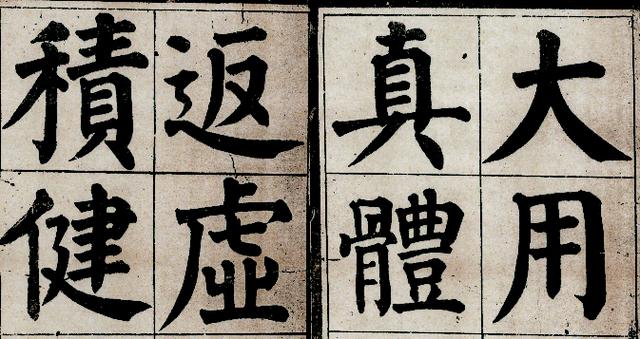 大用
真體
返虛
積健